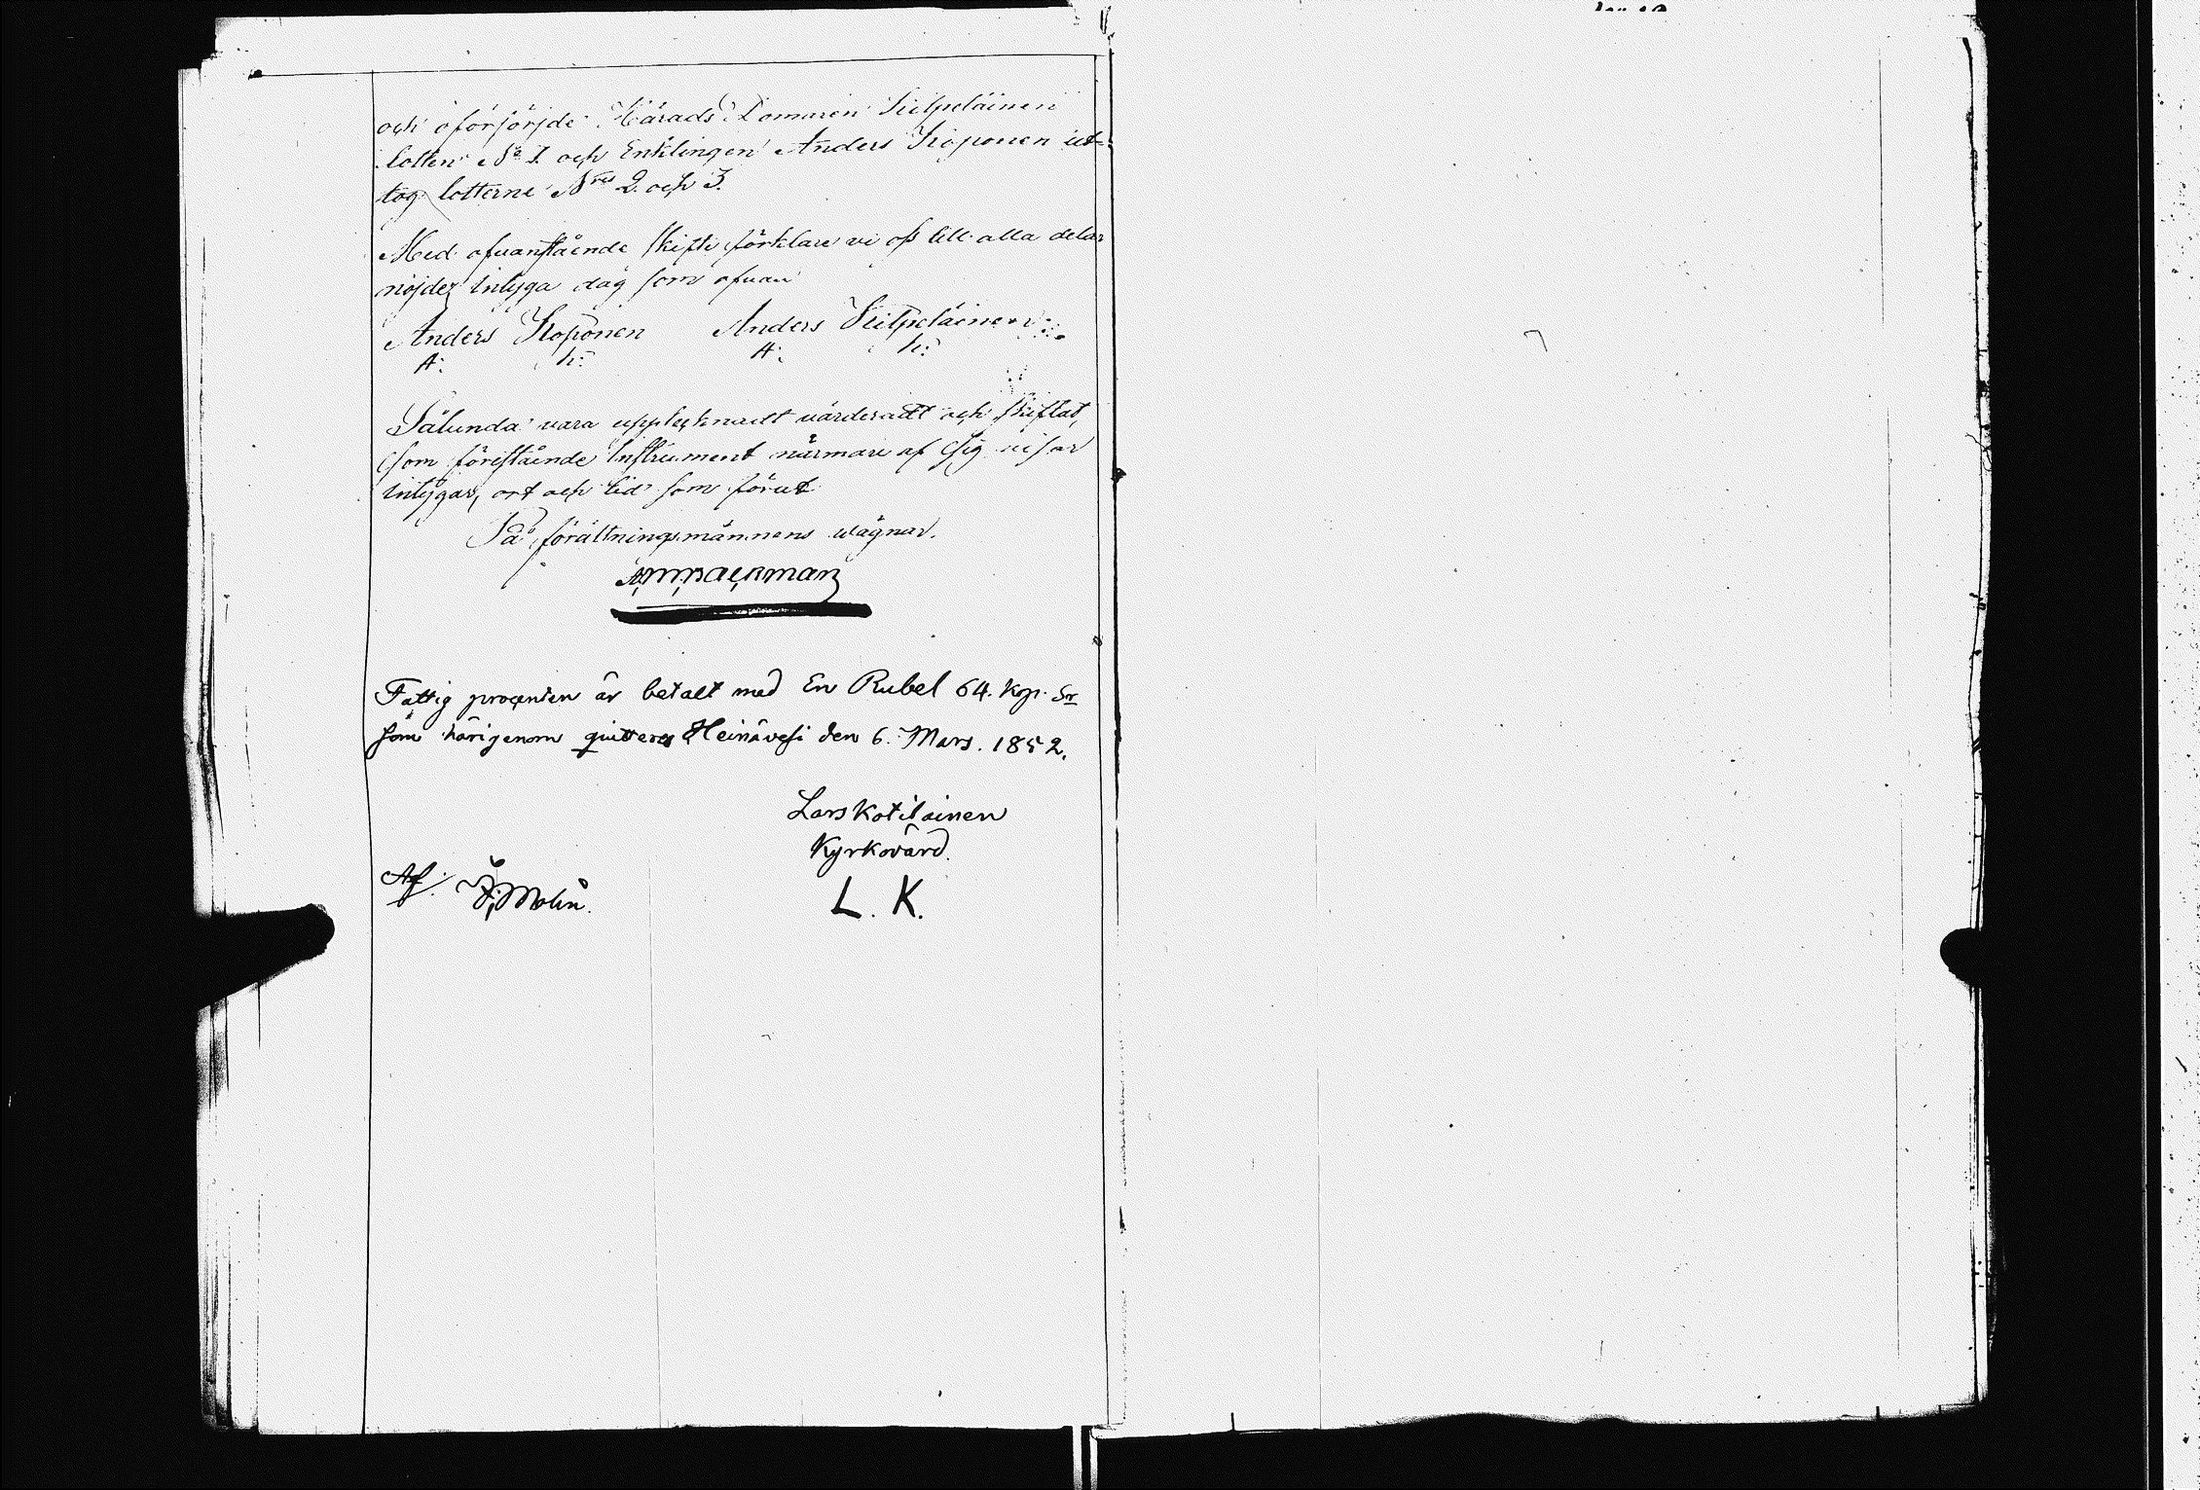 och Härads Domaren Kilpeläinen
lotten No 1. och Enklingen Anders Koponen ut=
tog lotterne Nris 2. och 3.
Med ofvanstående skifte förklare vi oss till alla delar
nöjde, intyga dag som ofvan
Anders Koponen Anders Kilpeläinen
A: K: A: K:
Sålunda vara uppteknadt värderadt och skiftat,
som förestående Instrument närmare af sig visar
intygar, ort och tid som förut
På förättningsmännens vägnar.
Backman
Fattig procenten är betalt med En Rubel 64. Kop. Sr
som härigenom quitteras Heinävesi den 6. Mars. 1852.
Lars Kotilainen
Kyrkovärd.
Af: Molin.
L. K.